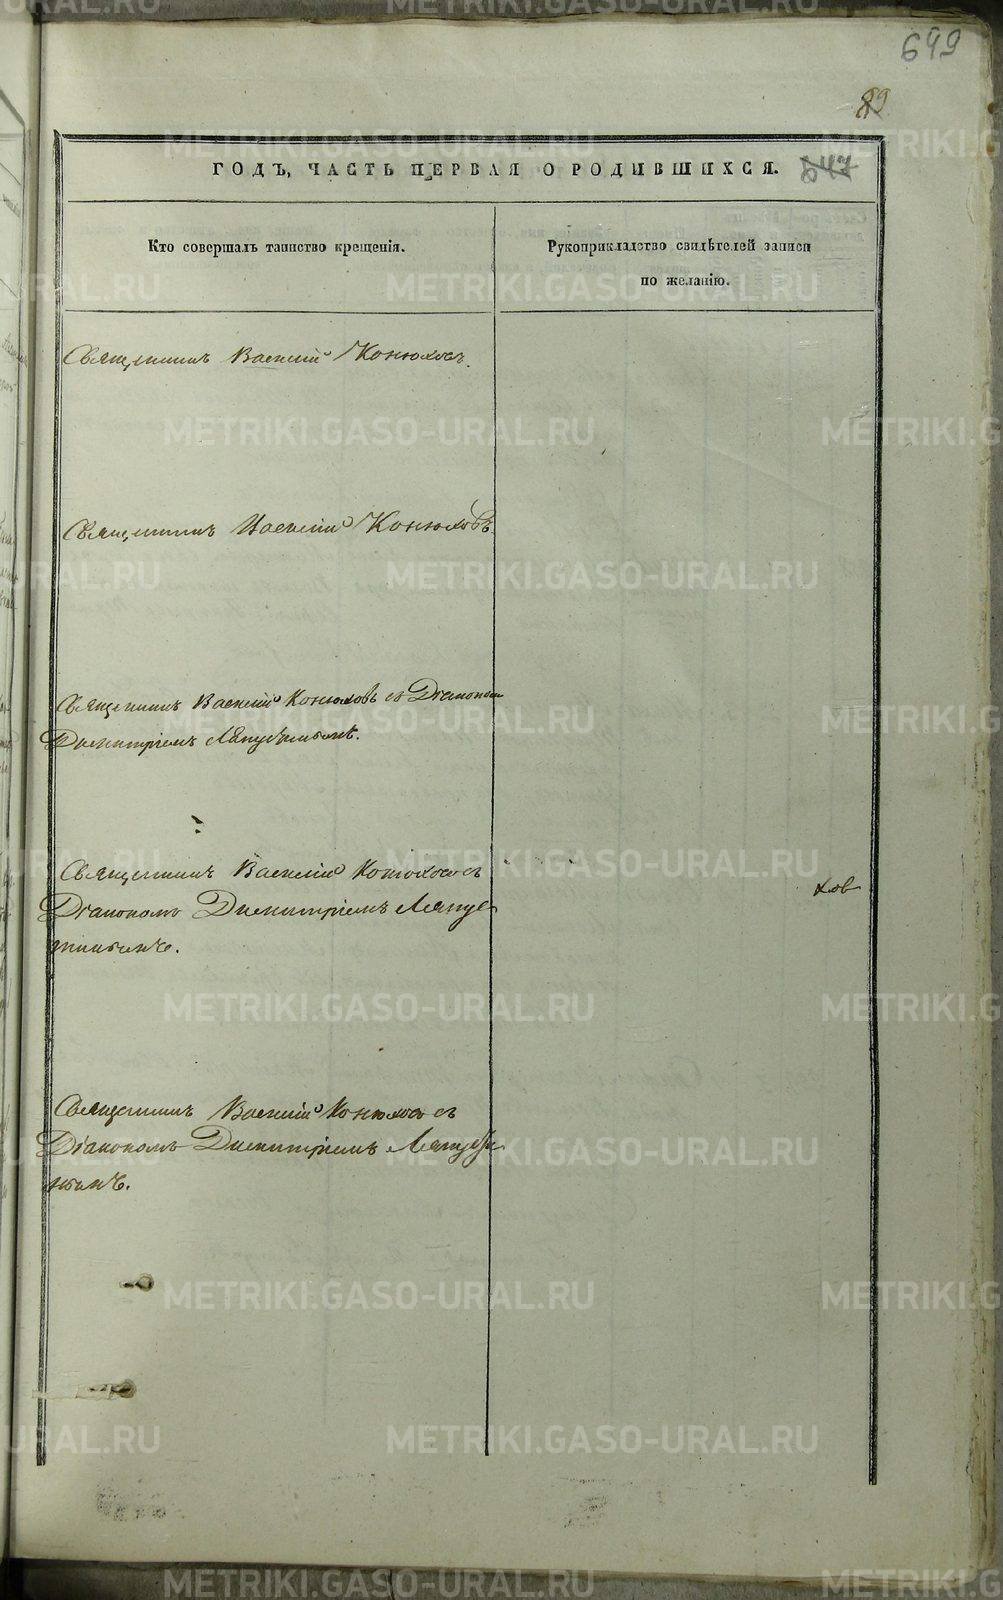 699
89
ГОДЪ, ЧАСТЬ ПЕРВАЯ О РОДИВШИХСЯ. 547
Кто совершалъ таинство крещенія.
Рукоприкладство свидѣтелей записи
по желанію.
Священникъ Василій Конюховъ.
Священникъ Василій Конюховъ.
Священникъ Василій Конюховъ съ Діакономъ
Димитріемъ
Священникъ Василій Конюховъ съ
Діакономъ Димитріемъ
хов
Священникъ Василій Конюховъ съ
Діакономъ Димитріемъ
METRIKI.GASO-URAL.RU